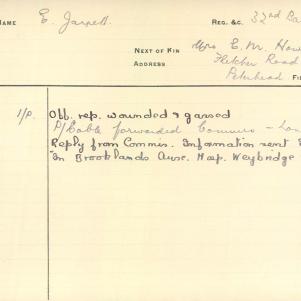 NAME E. Jarrett REG. &C. 32nd Ba
NEXT OF KIN Mrs E. M. How
ADDRESS Fletcher Road
Peterhead FI
1/P. Off. rep. wounded & gassed
P/Cable forwarded Commrs - Lon
Reply from Commis. Information sent
"In Brooklands Aux. Hosp. Weybridge